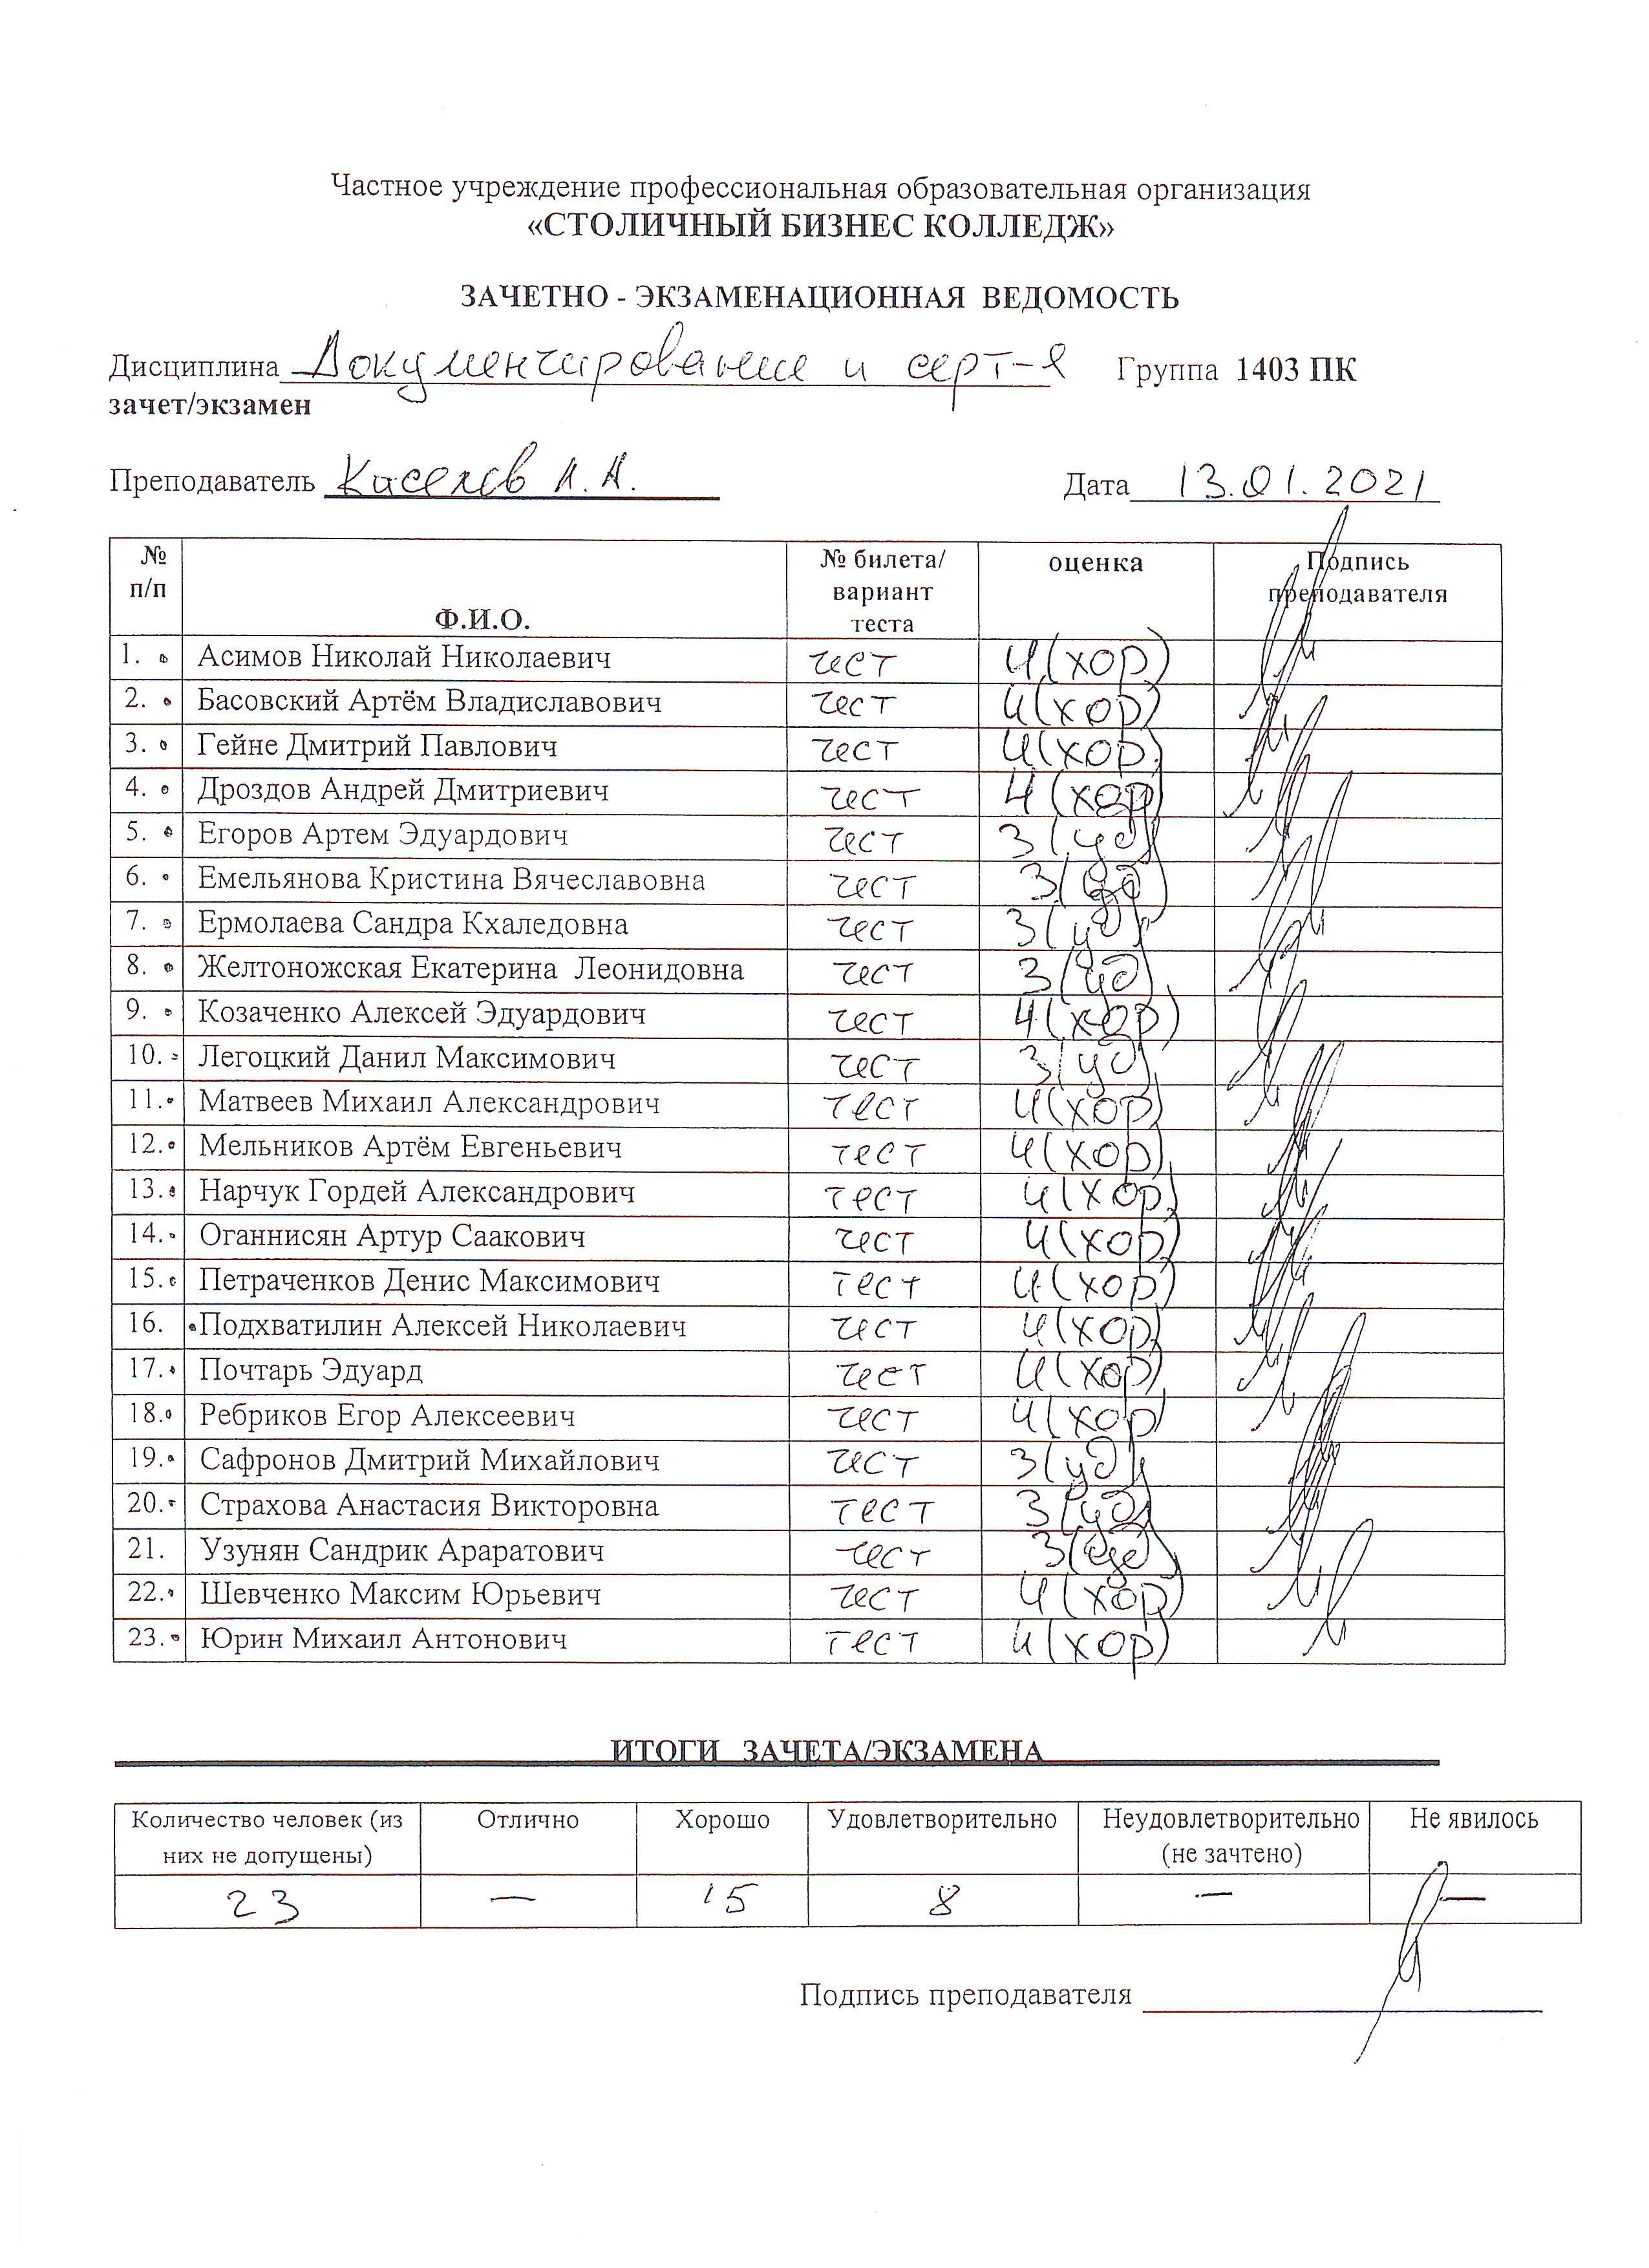 Частное учреждение профессиональная образовательная организация
«СТОЛИЧНЫЙ БИЗНЕС КОЛЛЕДЖ»
ЗАЧЕТНО - ЭКЗАМЕНАЦИОННАЯ ВЕДОМОСТЬ
Дисциплина Документирование и серт-я Группа 1403 ПК
зачет/экзамен
Преподаватель Киселев А. А. Дата 13.01.2021
№ п/п Ф.И.О. № билета/ вариант теста оценка Подпись преподавателя
1. Асимов Николай Николаевич тест 4 (хор)
2. Басовский Артём Владиславович тест 4 (хор)
3. Гейне Дмитрий Павлович тест 4 (хор)
4. Дроздов Андрей Дмитриевич тест 4 (хор)
5. Егоров Артем Эдуардович тест 3 (уд)
6. Емельянова Кристина Вячеславовна тест 3 (уд)
7. Ермолаева Сандра Кхаледовна тест 3 (уд)
8. Желтоножская Екатерина Леонидовна тест 3 (уд)
9. Козаченко Алексей Эдуардович тест 4 (хор)
10. Легоцкий Данил Максимович тест 3 (уд)
11. Матвеев Михаил Александрович тест 4 (хор)
12. Мельников Артём Евгеньевич тест 4 (хор)
13. Нарчук Гордей Александрович тест 4 (хор)
14. Оганнисян Артур Саакович тест 4 (хор)
15. Петраченков Денис Максимович тест 4 (хор)
16. Подхватилин Алексей Николаевич тест 4 (хор)
17. Почтарь Эдуард тест 4 (хор)
18. Ребриков Егор Алексеевич тест 4 (хор)
19. Сафронов Дмитрий Михайлович тест 3 (уд)
20. Страхова Анастасия Викторовна тест 3 (уд)
21. Узунян Сандрик Араратович тест 3 (уд)
22. Шевченко Максим Юрьевич тест 4 (хор)
23. Юрин Михаил Антонович тест 4 (хор)
ИТОГИ ЗАЧЕТА/ЭКЗАМЕНА
Количество человек (из них не допущены) Отлично Хорошо Удовлетворительно Неудовлетворительно (не зачтено) Не явилось
23 — 15 8 — —
Подпись преподавателя